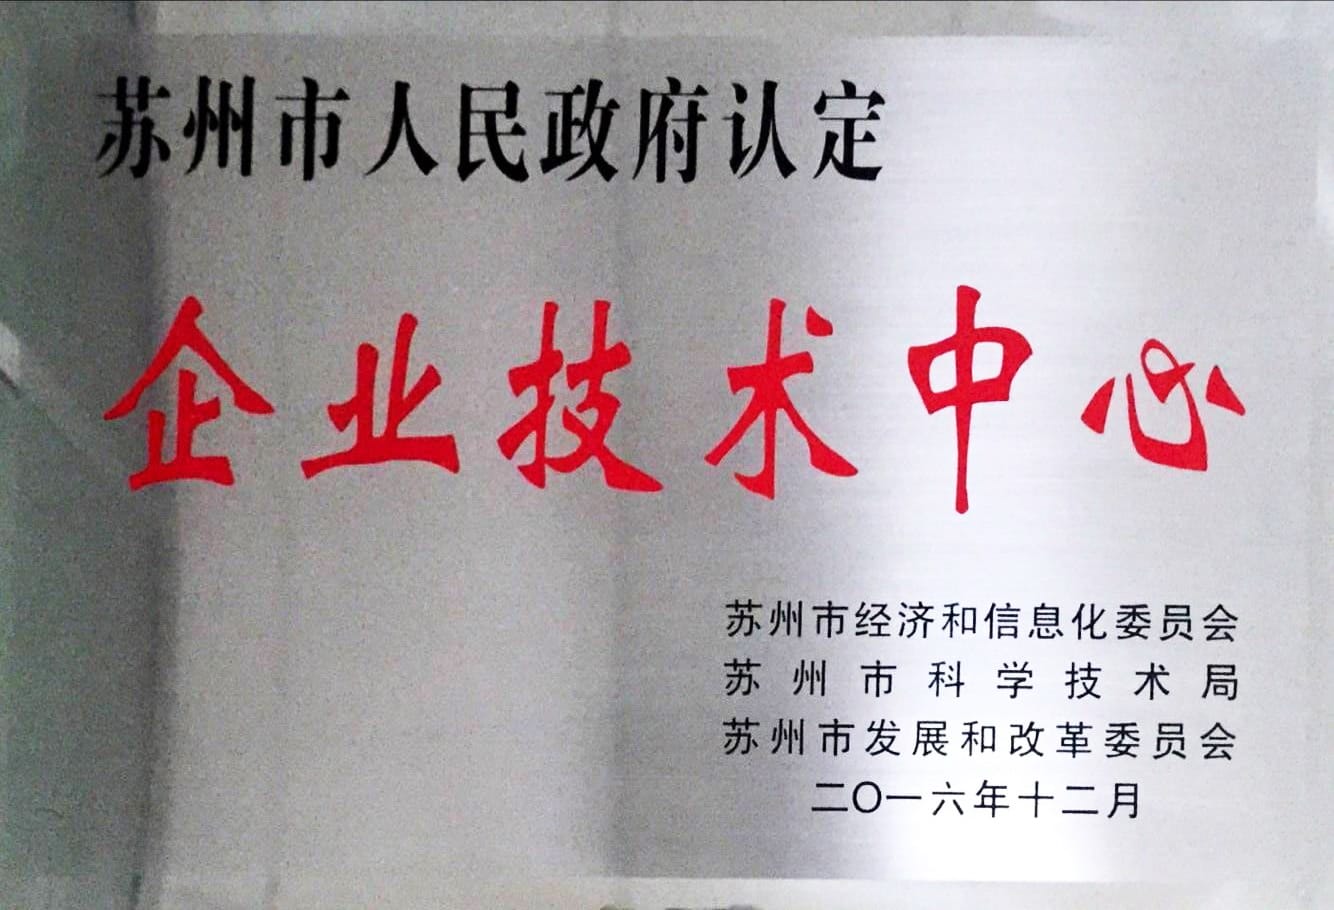 苏州市人民政府认定
企业技术中心
苏州市经济和信息化委员会
苏州市科学技术局
苏州市发展和改革委员会
二〇一六年十二月